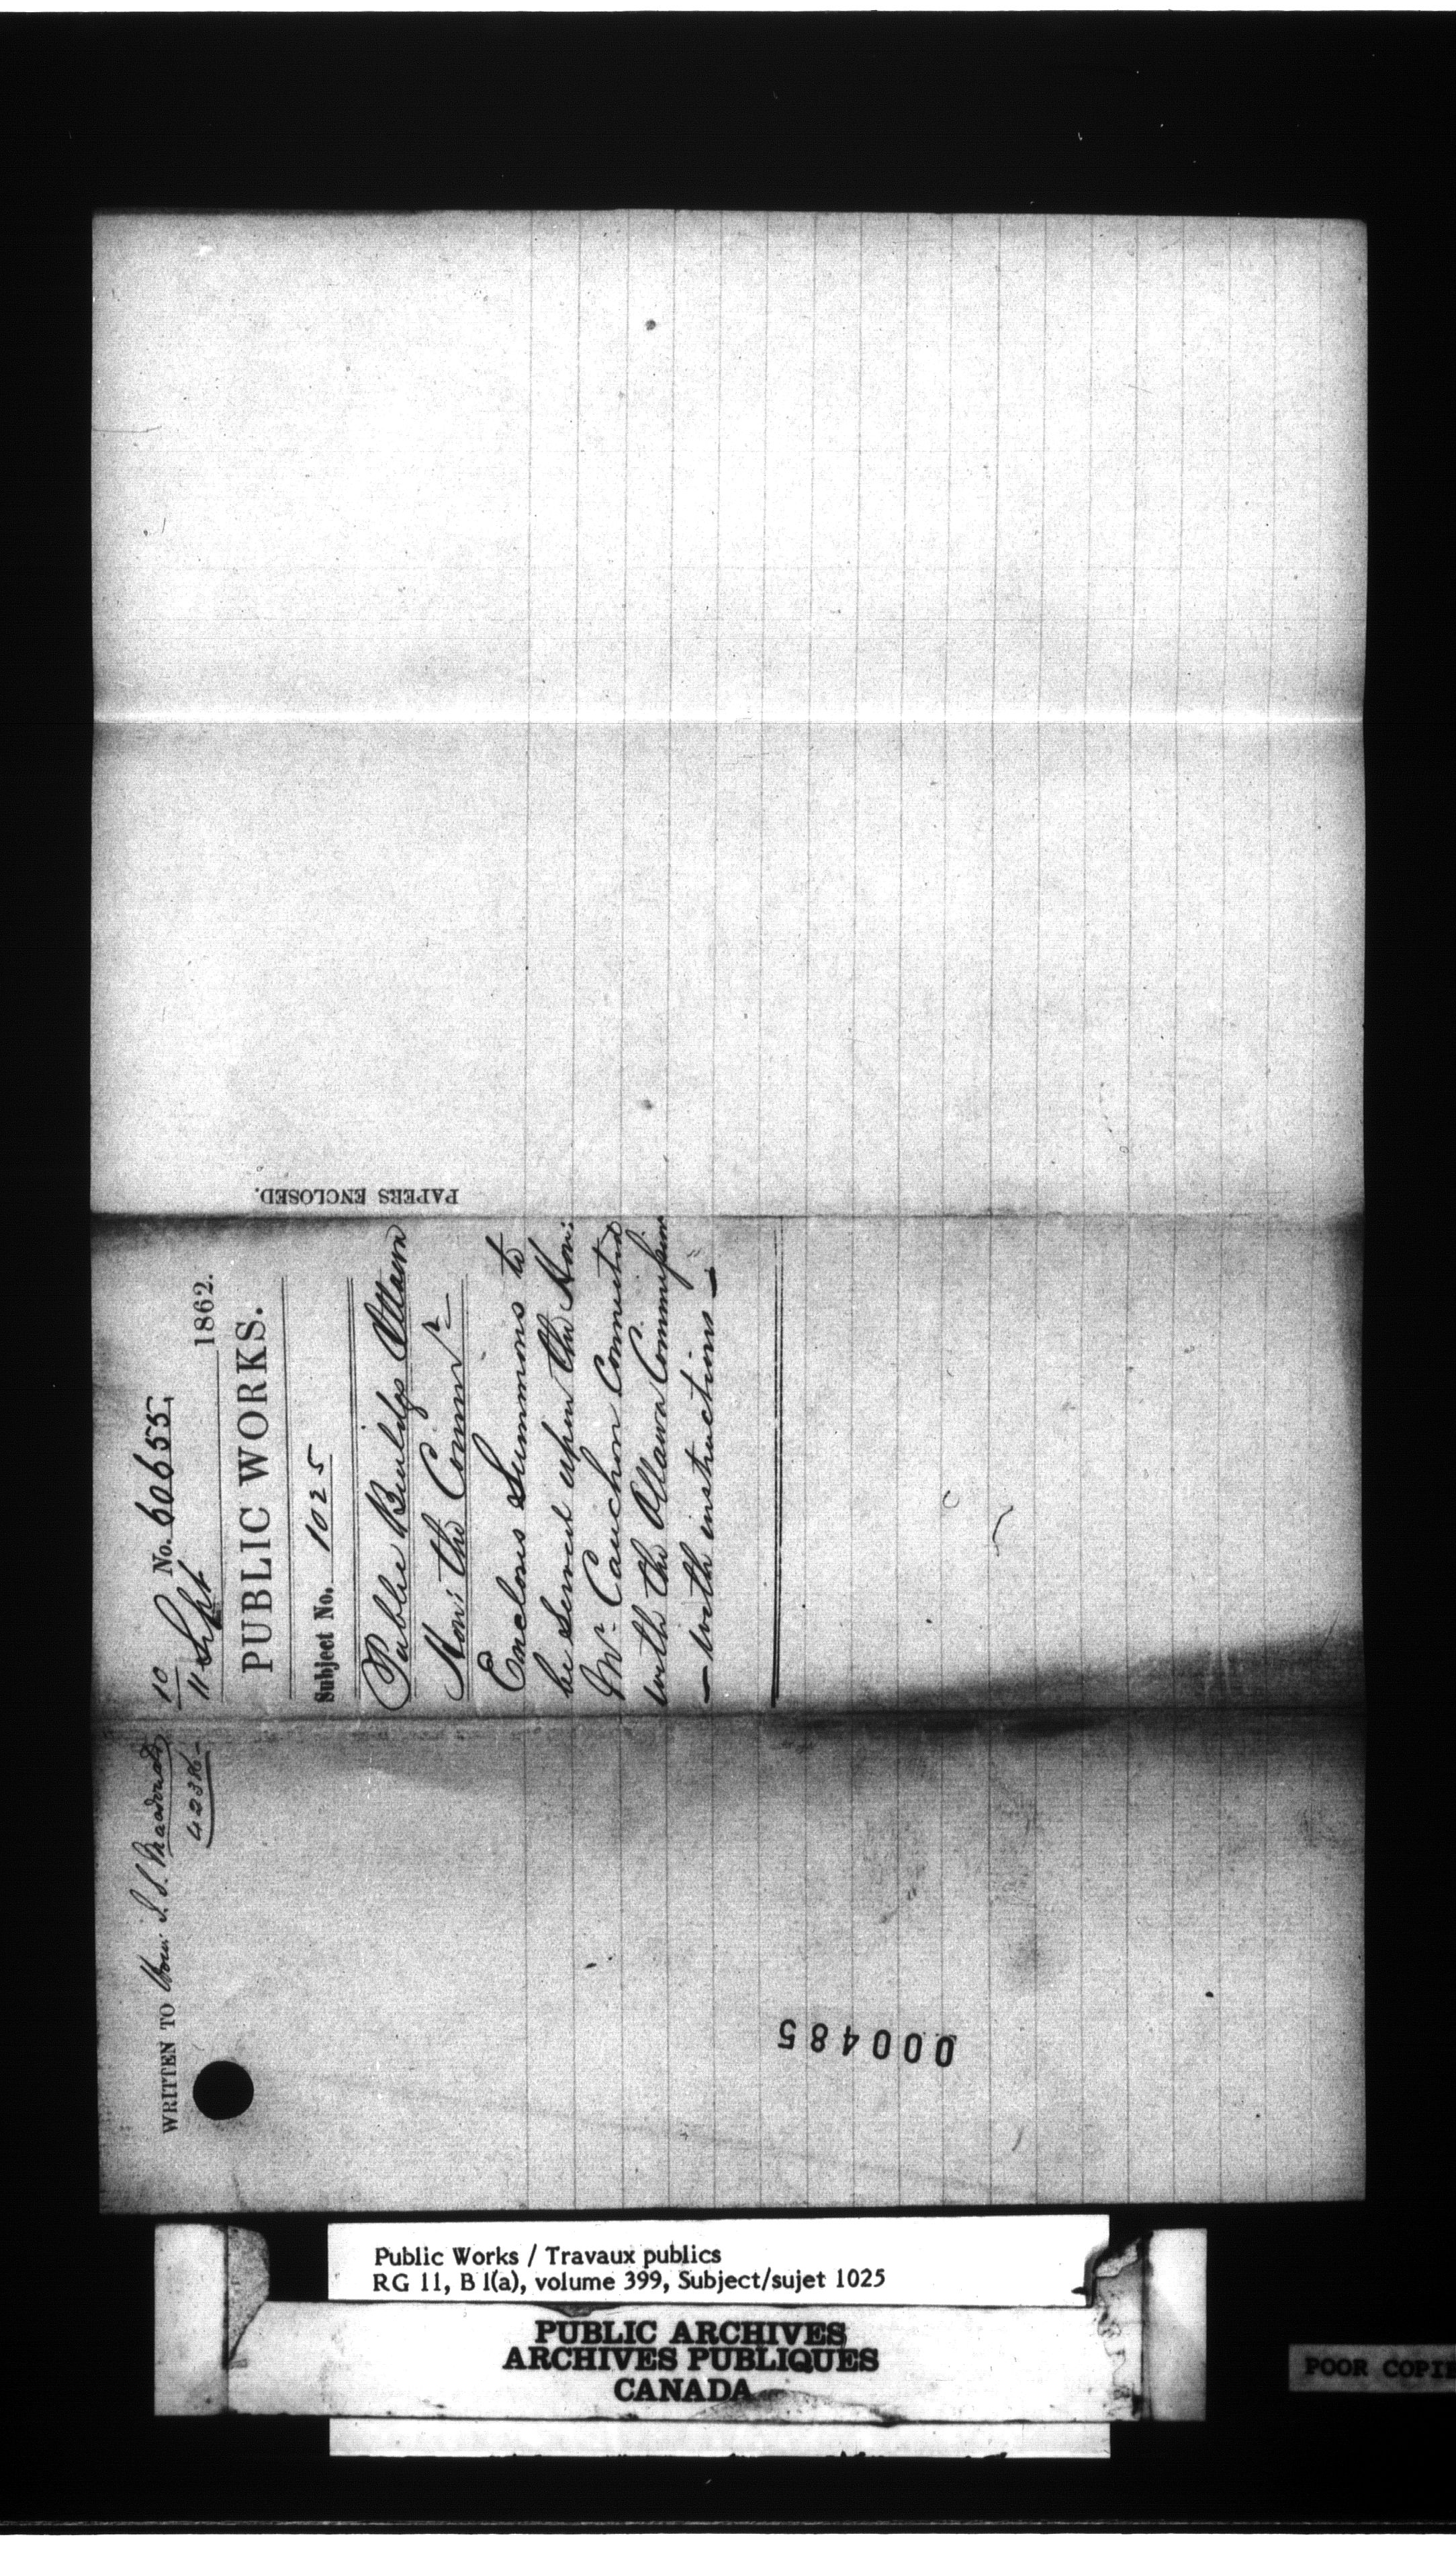 10 No. 60655.
11 Sept 1862.
PUBLIC WORKS.
Subject No. 1025
Public Buildgs Ottawa
Hon: the Commr
Encloses Summons to
be served upon the Hon:
Mr Cauchon Connected
with the Ottawa Commission
— with instructions —
PAPERS ENCLOSED.
WRITTEN TO Hon:
42386-
000485
Public Works / Travaux publics
RG 11, B 1(a), volume 399, Subject/sujet 1025
PUBLIC ARCHIVES
ARCHIVES PUBLIQUES
CANADA
POOR COPI